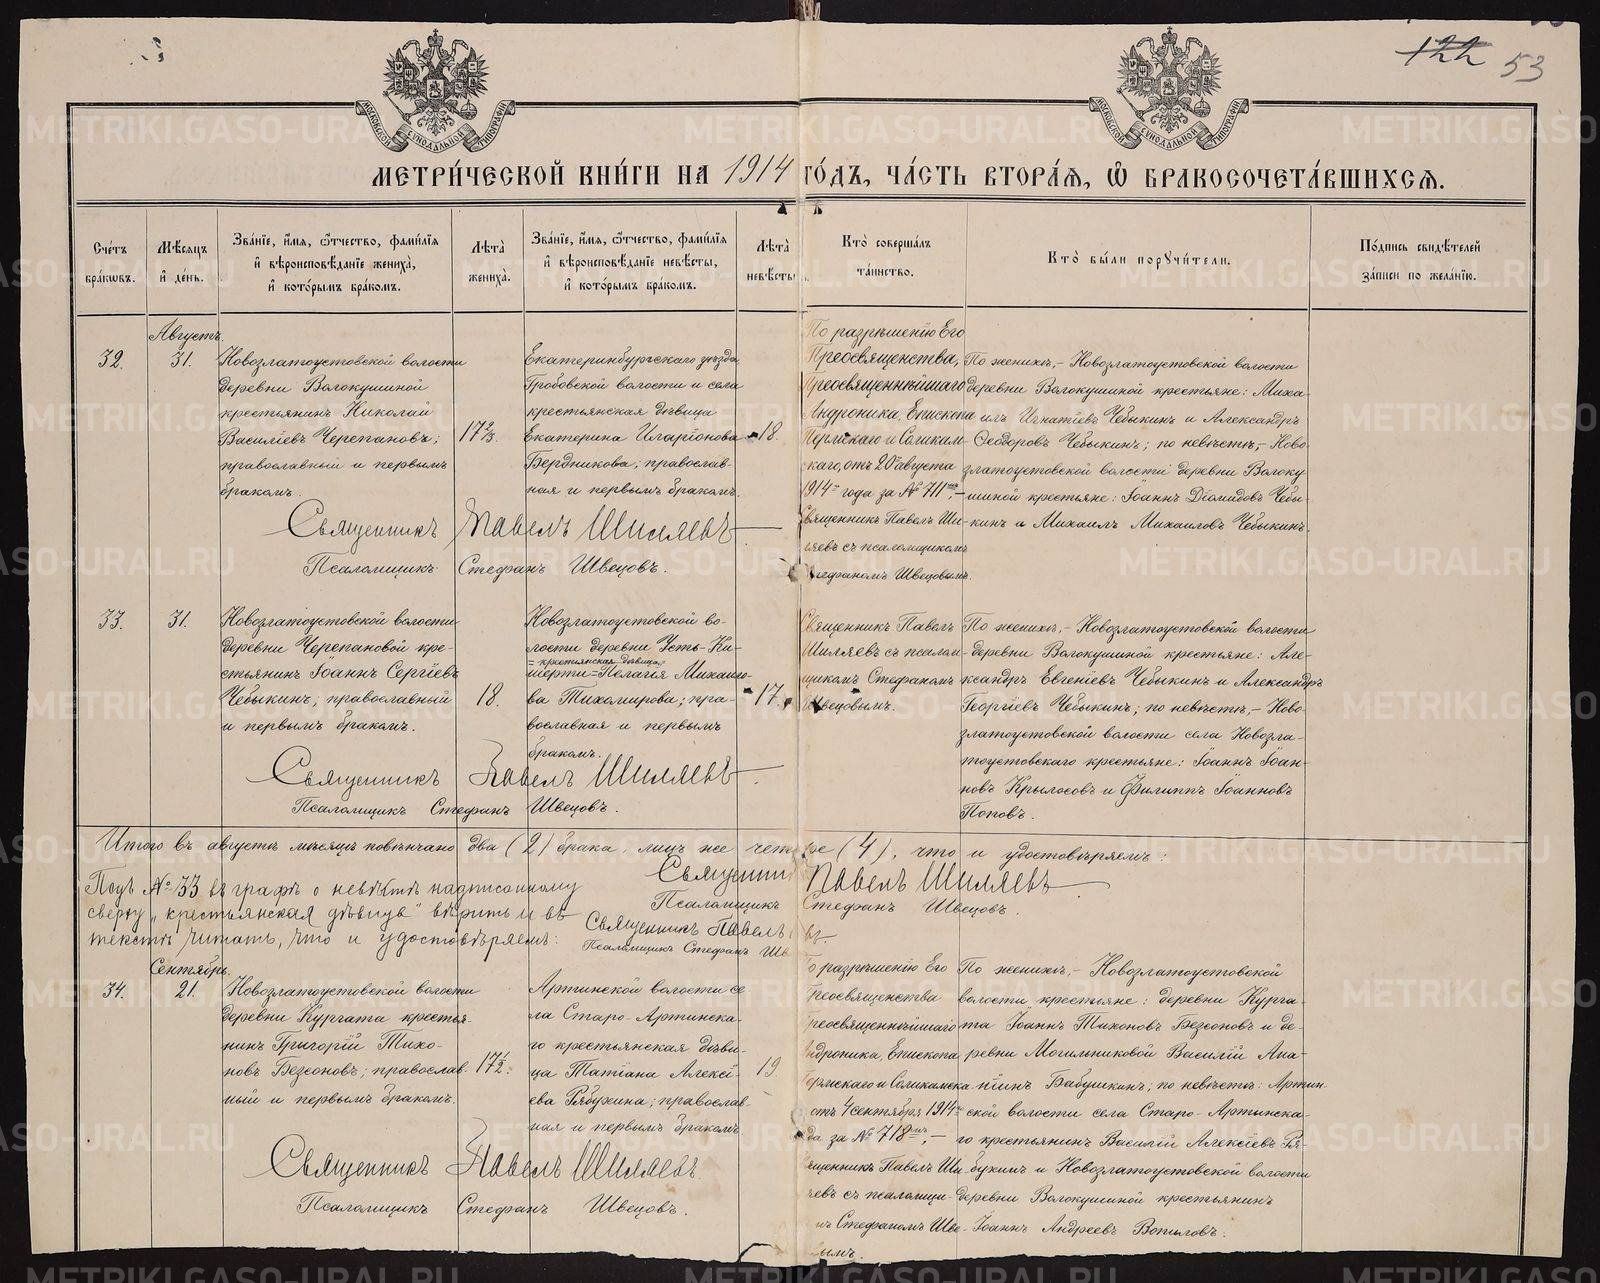 122 53
МЕТРИ́ЧЕСКОЙ КНИ́ГИ НА 1914 ГО́ДЪ, ЧА́СТЬ ВТОРА́Я, Ѡ БРАКОСОЧЕТА́ВШИХСЯ.
Сче́тъ бра́ковъ.
Мѣ́сяцъ и де́нь.
Зва́нїе, и́мя, ѻ́тчество, фами́лїя и вѣроисповѣ́данїе жениха̀, и кото́рымъ бра́комъ.
Лѣта̀ жениха̀.
Зва́нїе, и́мя, ѻ́тчество, фами́лїя и вѣроисповѣ́данїе невѣ́сты, и кото́рымъ бра́комъ.
Лѣта̀ невѣ́сты.
Кто̀ соверша́лъ та́инство.
Кто̀ бы́ли поручи́тели.
По́дпись свидѣ́телей за́писи по жела́нїю.
Августъ.
32.
31.
Новозлатоустовской волости
деревни Волокушиной
крестьянинъ Николай
Василіевъ Черепановъ;
православный и первымъ
бракомъ.
17 2/3.
Екатеринбургскаго уѣзда
Гробовской волости и села
крестьянская дѣвица
Екатерина Иларіонова
Бердникова; православ-
ная и первымъ бракомъ.
18.
По разрѣшенію Его
Преосвященства,
Преосвященнѣйшаго
Андроника, Епископа
Пермскаго и Соликам-
скаго, отъ 20 августа
1914 года за № 711,-
Священникъ Павелъ Ши-
ляевъ съ псаломщикомъ
Стефаномъ Швецовымъ.
По женихѣ,- Новозлатоустовской волости
деревни Волокушиной крестьяне: Миха-
илъ Игнатіевъ Чебыкинъ и Александръ
Ѳеодоровъ Чебыкинъ; по невѣстѣ,- Ново-
златоустовской волости деревни Волоку
шиной крестьяне: Іоаннъ Діомидовъ Чебы-
кинъ и Михаилъ Михаиловъ Чебыкинъ.
Священникъ Павелъ Шиляевъ
Псаломщикъ Стефанъ Швецовъ.
33.
31.
Новозлатоустовской волости
деревни Черепановой кре-
стьянинъ Іоаннъ Сергіевъ
Чебыкинъ; православный
и первымъ бракомъ.
18.
Новозлатоустовской во-
лости деревни Усть-Ки-
= крестьянская дѣвица
шерти=Пелагія Михаило-
ва Тихомирова; пра-
вославная и первымъ
бракомъ.
17.
Священникъ Павелъ
Шиляевъ съ псалом-
щикомъ Стефаномъ
Швецовымъ.
По женихѣ,- Новозлатоустовской волости
деревни Волокушиной крестьяне: Але-
ксандръ Евгеніевъ Чебыкинъ и Александръ
Георгіевъ Чебыкинъ; по невѣстѣ,- Ново-
златоустовской волости села Новозла-
тоустовскаго крестьяне: Іоаннъ Іоан-
новъ Крылосовъ и Филиппъ Іоанновъ
Поповъ.
Священникъ Павелъ Шиляевъ
Псаломщикъ Стефанъ Швецовъ.
Итого въ августѣ мѣсяцѣ повѣнчано два (2) брака, лицъ же четыре (4), что и удостовѣряемъ:
Священникъ Павелъ Шиляевъ
Псаломщикъ Стефанъ Швецовъ.
Подъ № 33 въ графѣ о невѣстѣ надписанному
сверху „крестьянская дѣвица" вѣрить и въ
текстѣ читать, что и удостовѣряемъ:
Священникъ Павелъ
Псаломщикъ Стефанъ Шве
Сентябрь.
34.
21.
Новозлатоустовской волости
деревни Кургата крестья-
нинъ Григорій Тихо-
новъ Безсоновъ; православ-
ный и первымъ бракомъ.
17 1/2.
Артинской волости се
ла Старо-Артинска-
го крестьянская дѣви-
ца Татіана Алексі-
ева Рябухина; православ-
ная и первымъ бракомъ
19.
По разрѣшенію Его
Преосвященства
Преосвященнѣйшаго
Андроника, Епископа
Пермскаго и Соликамска
отъ 4 сентября 1914
да за № 718,-
Священникъ Павелъ Ши-
ляевъ съ псаломщи-
мъ Стефаномъ Шве-
вымъ.
По женихѣ,- Новозлатоустовской
волости, крестьяне: деревни Курга-
та Іоаннъ Тихоновъ Безсоновъ и де-
ревни Могильниковой Василій Ана-
ніинъ Бабушкинъ; по невѣстѣ: Артин-
ской волости села Старо-Артынска-
го крестьянинъ Василій Алексіевъ Ря-
бухинъ и Новозлатоустовской волости
деревни Волокушиной крестьянинъ
Іоаннъ Андреевъ Вотиловъ.
Священникъ Павелъ Шиляевъ.
Псаломщикъ Стефанъ Швецовъ.